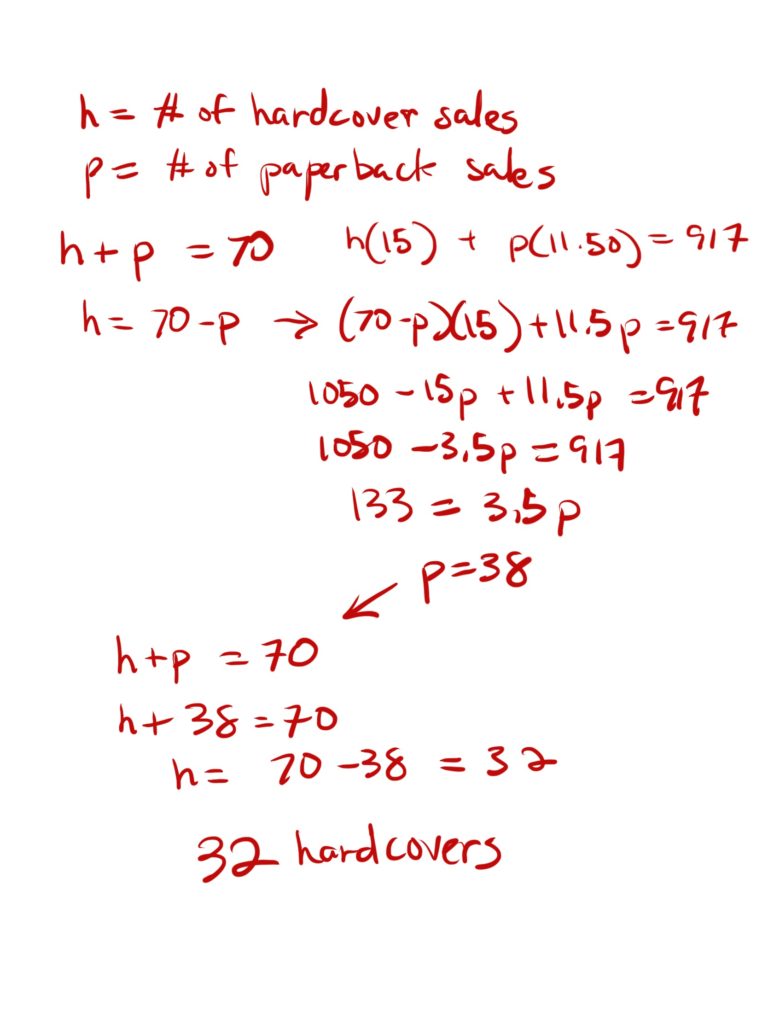 h = # of hardcover sales
p = # of paperback sales
h + p = 70 h(15) + p(11.50) = 917
h = 70 - p → (70 - p)(15) + 11.5p = 917
1050 - 15p + 11.5p = 917
1050 - 3.5p = 917
133 = 3.5p
p = 38
h + p = 70
h + 38 = 70
h = 70 - 38 = 32
32 hardcovers